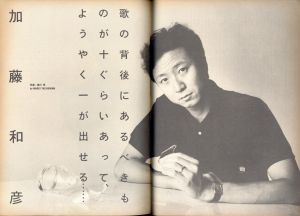 歌の背後にあるきも
のが十ぐらいあって
ようやく一が出せる……
加藤和彦